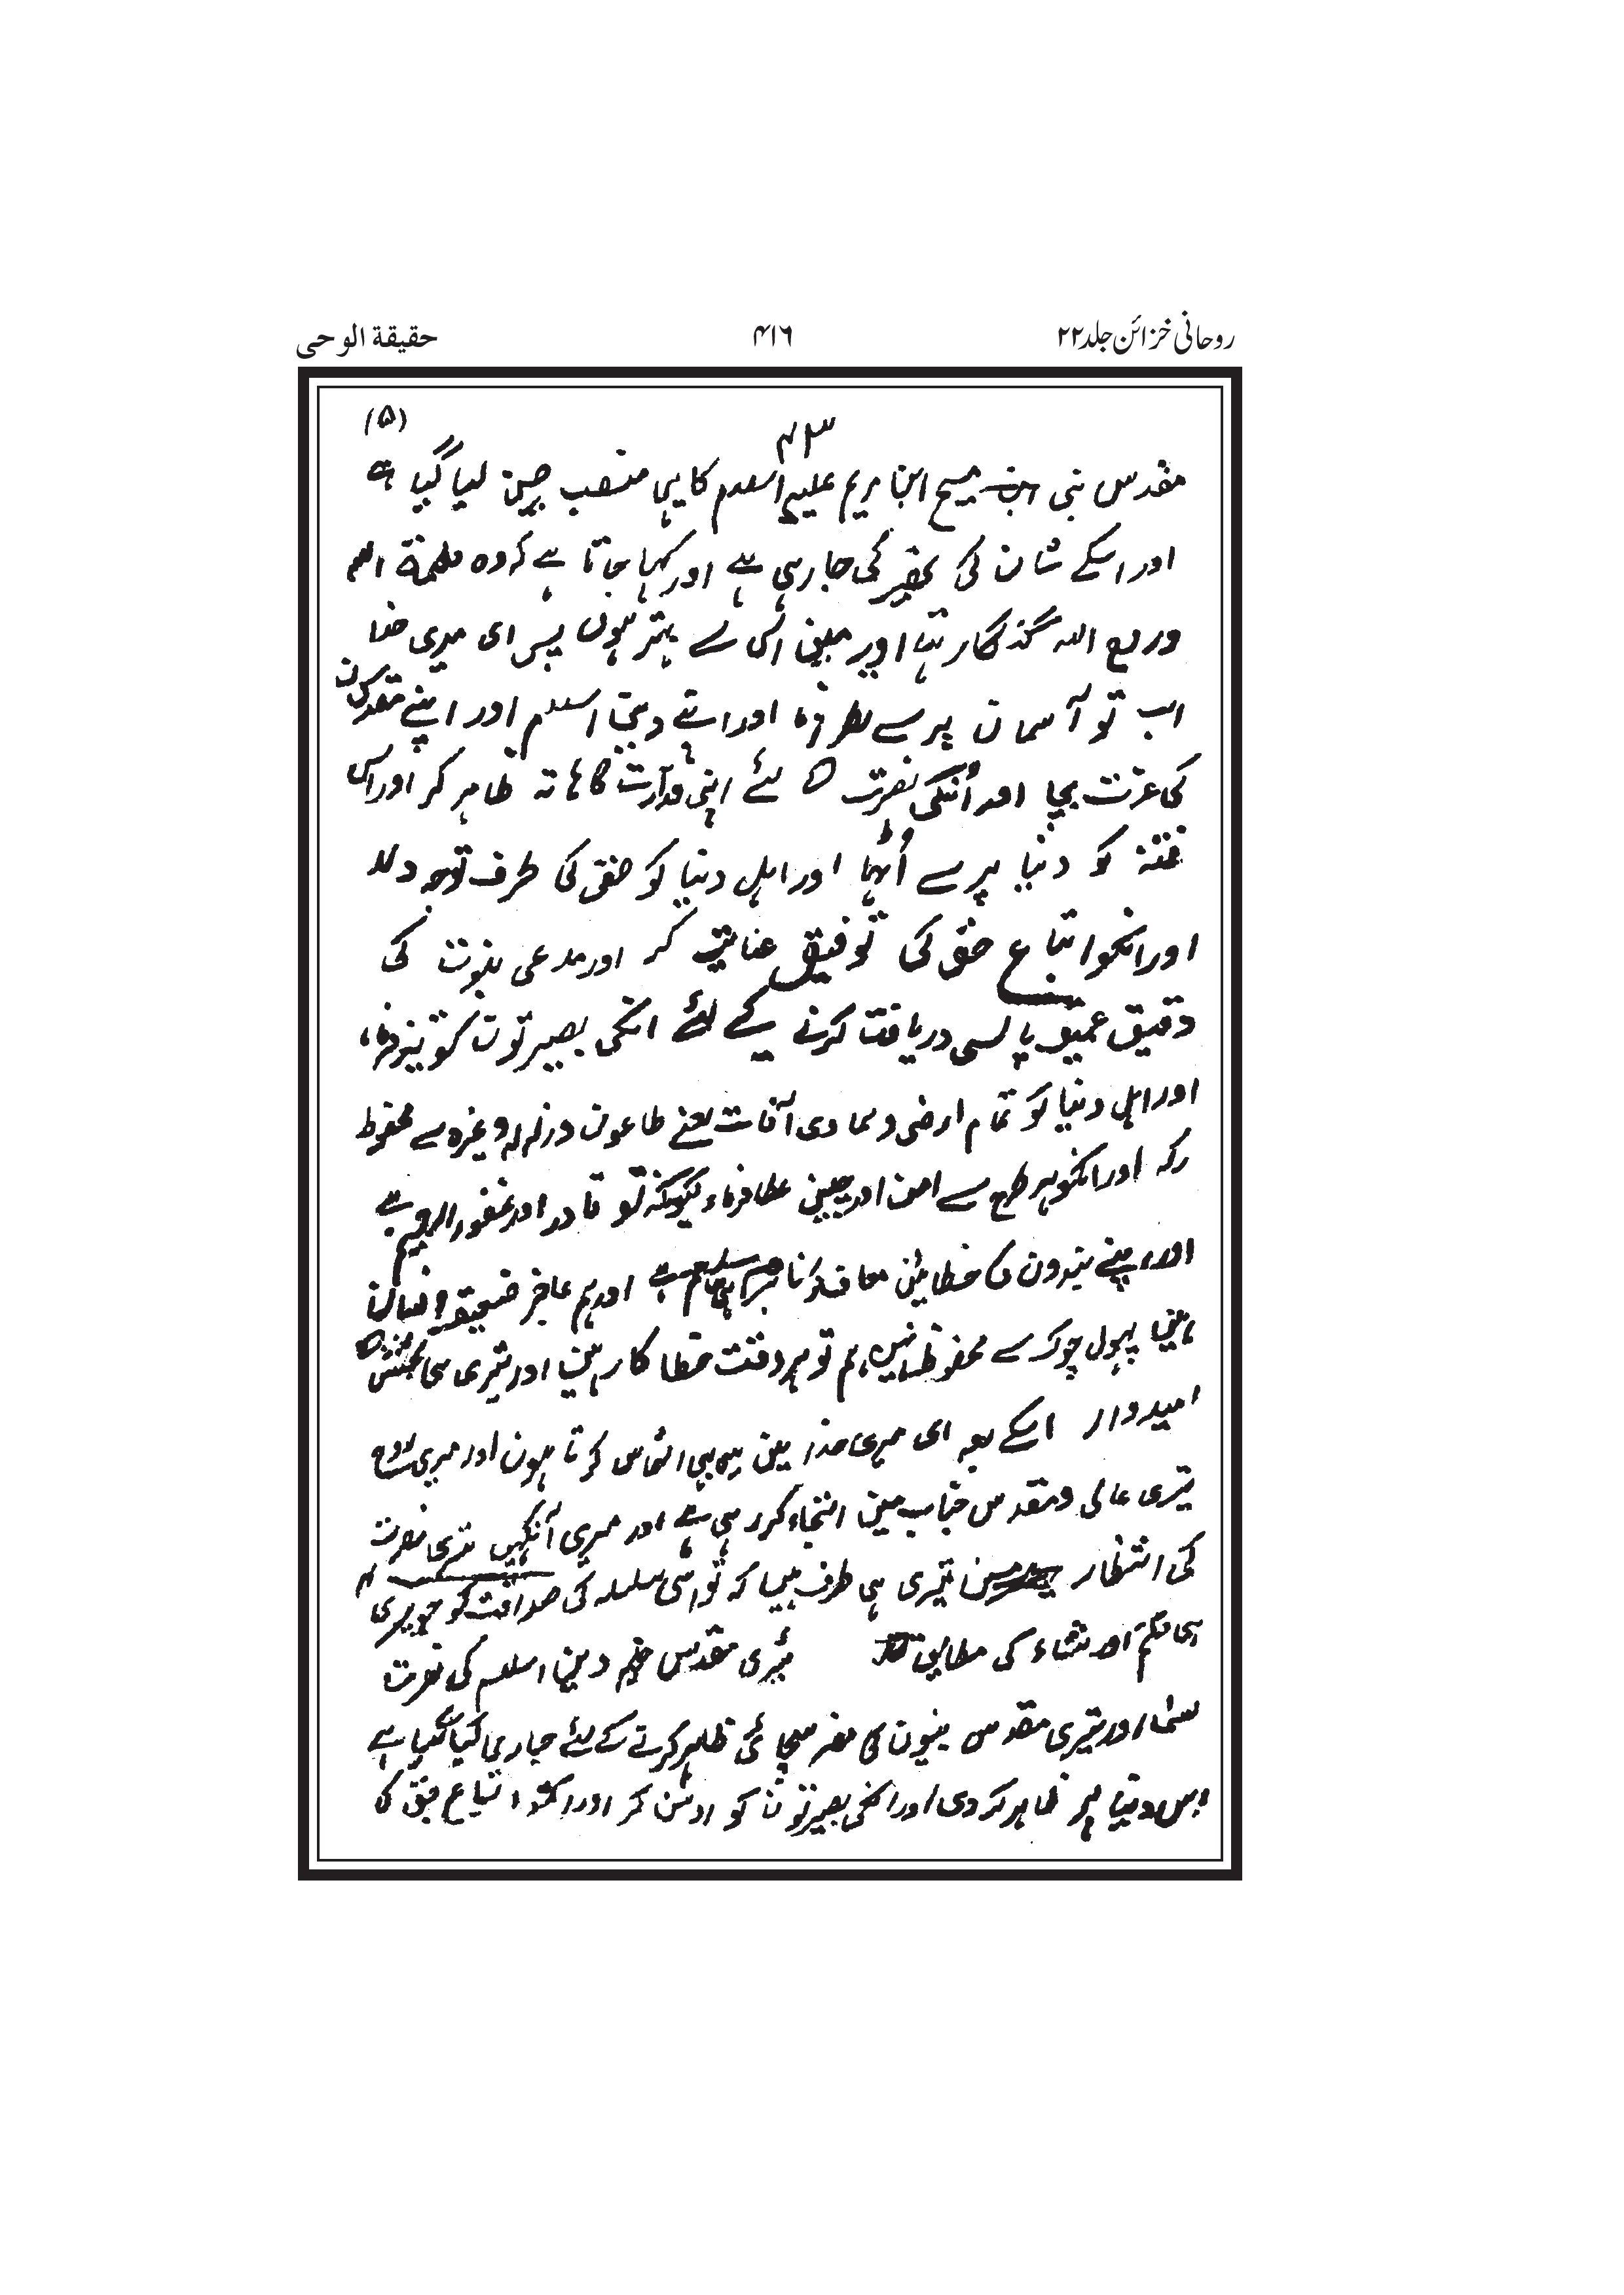 روحانی خزائن جلد۲۲
۴۱۶
حقیقة الوحی
(۵)
۴۳
مقدس نبی مسیح ابن مریم علیہ السلام کا یہی منصب چھین لیا گیا ہے
اور اسکے شان کی تحقیر کی جا رہی ہے اور کہا جاتا ہے کہ وہ کلمۃ اللہ
و روح اللہ گنہگار تہا اور مین اس سے بہتر ہوں پس ای میری خدا
اب تو آسمان پر سے نظر فرما اور اپنے دین اسلام اور اپنے مقدسون
کی عزت بچا اور اُنکی نصرت کے لئے اپنی قدرت کا ہاتہ ظاہر کر اور اس
فتنہ کو دنیا پر سے اُٹہا اور اہل دنیا کو حق کی طرف توجہ دلا
اور انکو اتباع حق کی توفیق عنایت کر اور مدعی نبوت کی
دقیق عمیق پالسی دریافت کرنے کے لئے انکی بصیرتون کو تیز فرما،
اور اہل دنیا کو تمام ارضی و سماوی آفات یعنے طاعون و زلزلہ وغیرہ سے محفوظ
رکہ اور انکو ہر طرح سے امن اور چین عطا فرماء کیونکہ تو قادر اور غفور الرحیم ہے
اور اپنے بندون کی خطائین معاف کرنا تیرا ہی کام ہے اور ہم عاجز ضعیف انسان
ہین بہول چوک سے محفوظ نہیں، ہم تو ہر وقت خطا کار ہین اور تیری ہی بخشش کے
امیدوار اسکے بعد ای میری خدا مین یہ بہی التماس کرتا ہون اور میری روح
تیری عالی و مقدس جناب مین التجاء کر رہی ہے اور میری آنکہیں تیری نصرت
کی انتظار مین تیری ہی طرف ہیں کہ تو اس سلسلہ کی صداقت کو جو تیری
ہی حکم اور منشاء کی مطابق تیری مقدس دین اسلام کی نصرت
کیلئے اور تیری مقدس نبیون کی سچائی ظاہر کرنے کے لئے جاری کیا گیا ہے
اس دنیا پر ظاہر کر دی اور انکی بصیرتون کو روشن کر اور انکو اتباع حق کی